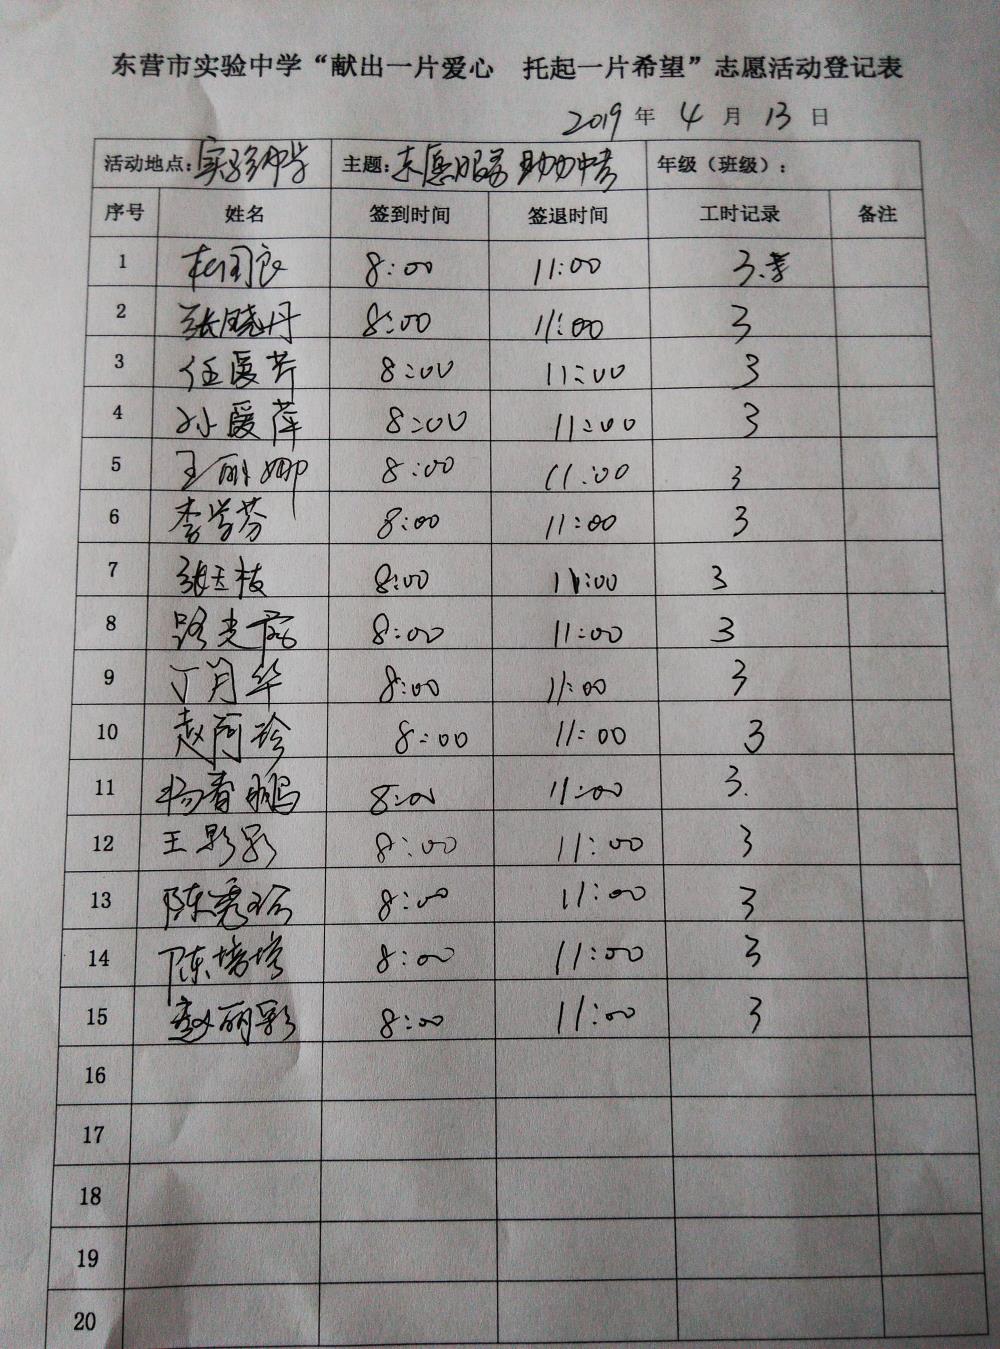 东营市实验中学“献出一片爱心 托起一片希望”志愿活动登记表
2019年 4 月 13 日
活动地点:实验中学 主题:志愿服务 助力中考 年级（班级）:
序号 姓名 签到时间 签退时间 工时记录 备注
1 杜国良 8:00 11:00 3.
2 张晓丹 8:00 11:00 3
3 任爱芹 8:00 11:00 3
4 孙爱萍 8:00 11:00 3
5 王丽娜 8:00 11:00 3
6 李学芬 8:00 11:00 3
7 张玉枝 8:00 11:00 3
8 路光 8:00 11:00 3
9 丁月华 8:00 11:00 3
10 赵丽珍 8:00 11:00 3
11 杨春鹏 8:00 11:00 3.
12 王影影 8:00 11:00 3
13 陈秀 8:00 11:00 3
14 陈培培 8:00 11:00 3
15 赵丽彩 8:00 11:00 3
16
17
18
19
20